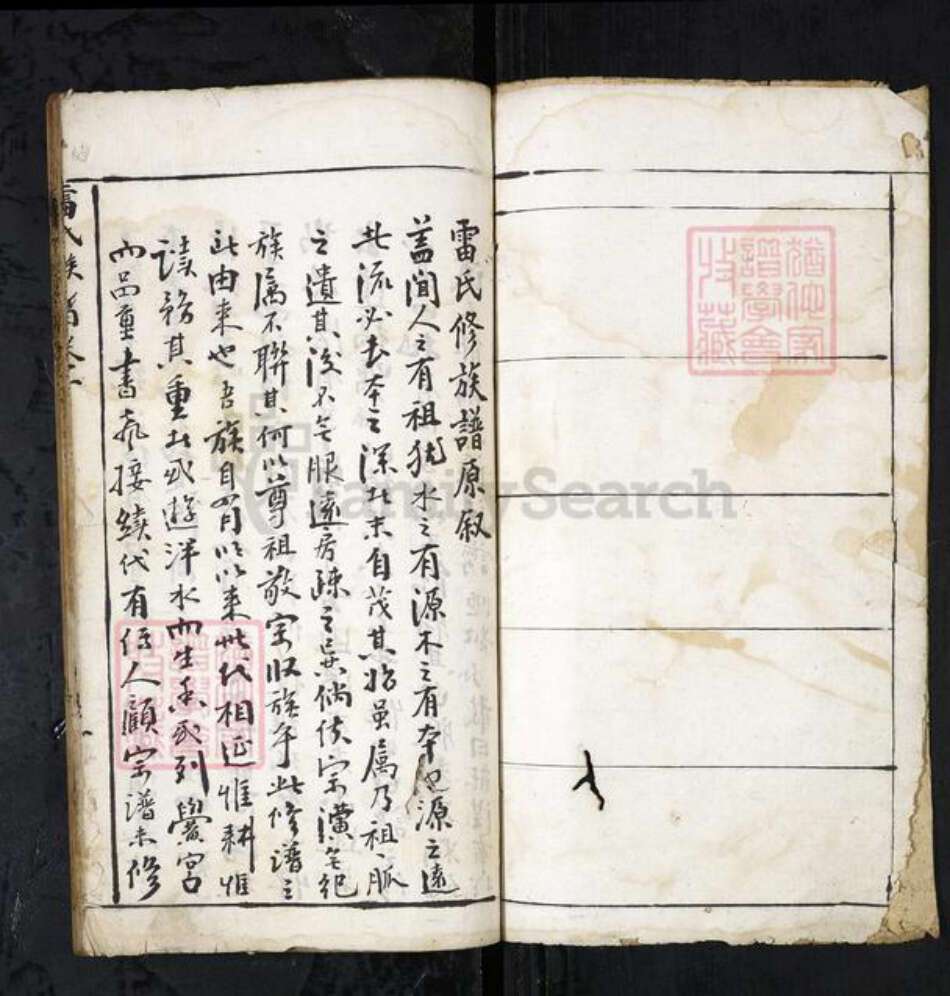 猶他家
譜學會
收藏
雷氏修族譜原叙
盖闻人之有祖犹水之有源木之有本也源之遠
者流必長本之深者末自茂其始虽属乃祖脈
之遺其後不無服遠房疎之異倘使宗潢無纪
族属不聯其何以尊祖敬宗收族乎此修譜之
所由来也吾族自以来世代相延惟耕惟
讀務其重者或游泮水而生香或列黌宮
而品重書氣接續代有偉人顧宗譜未修
雷氏族譜卷
FamilySearch